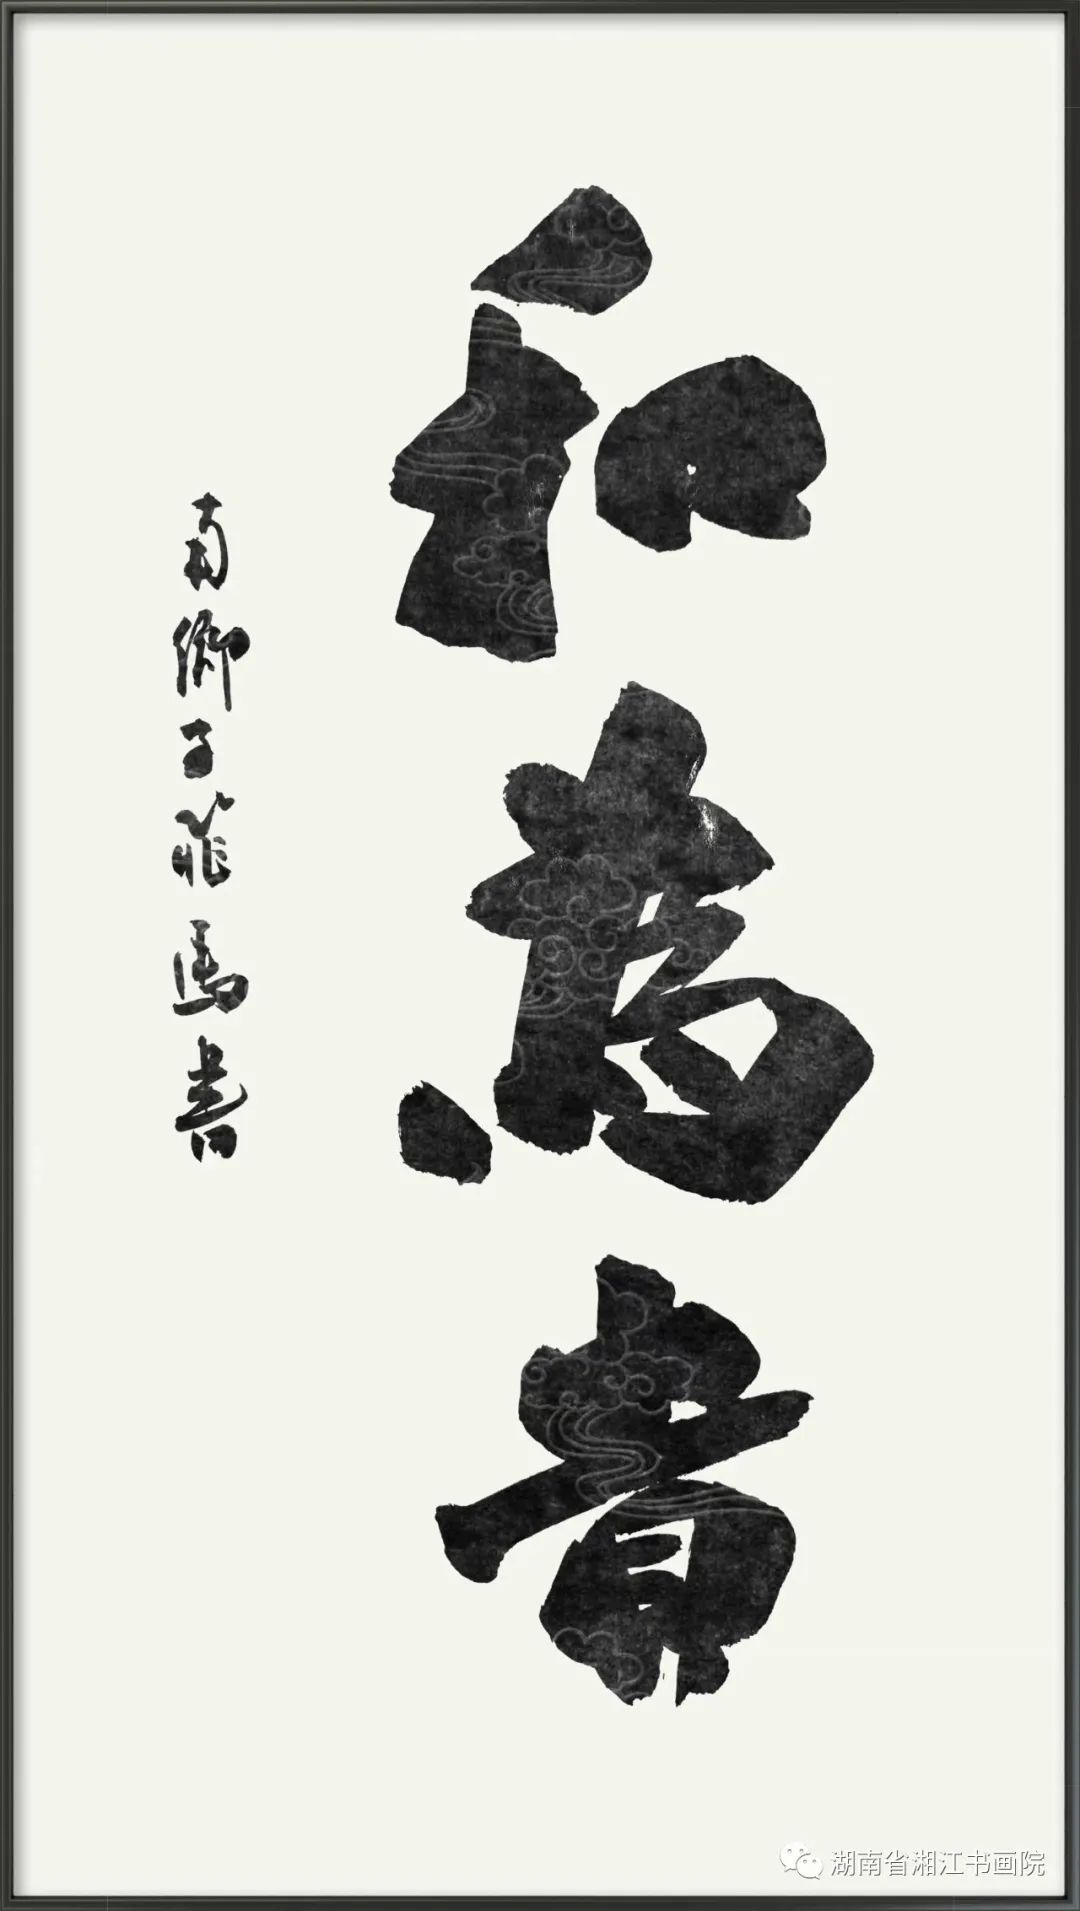 和為貴
南鄉子菲馬書
湖南省湘江书画院